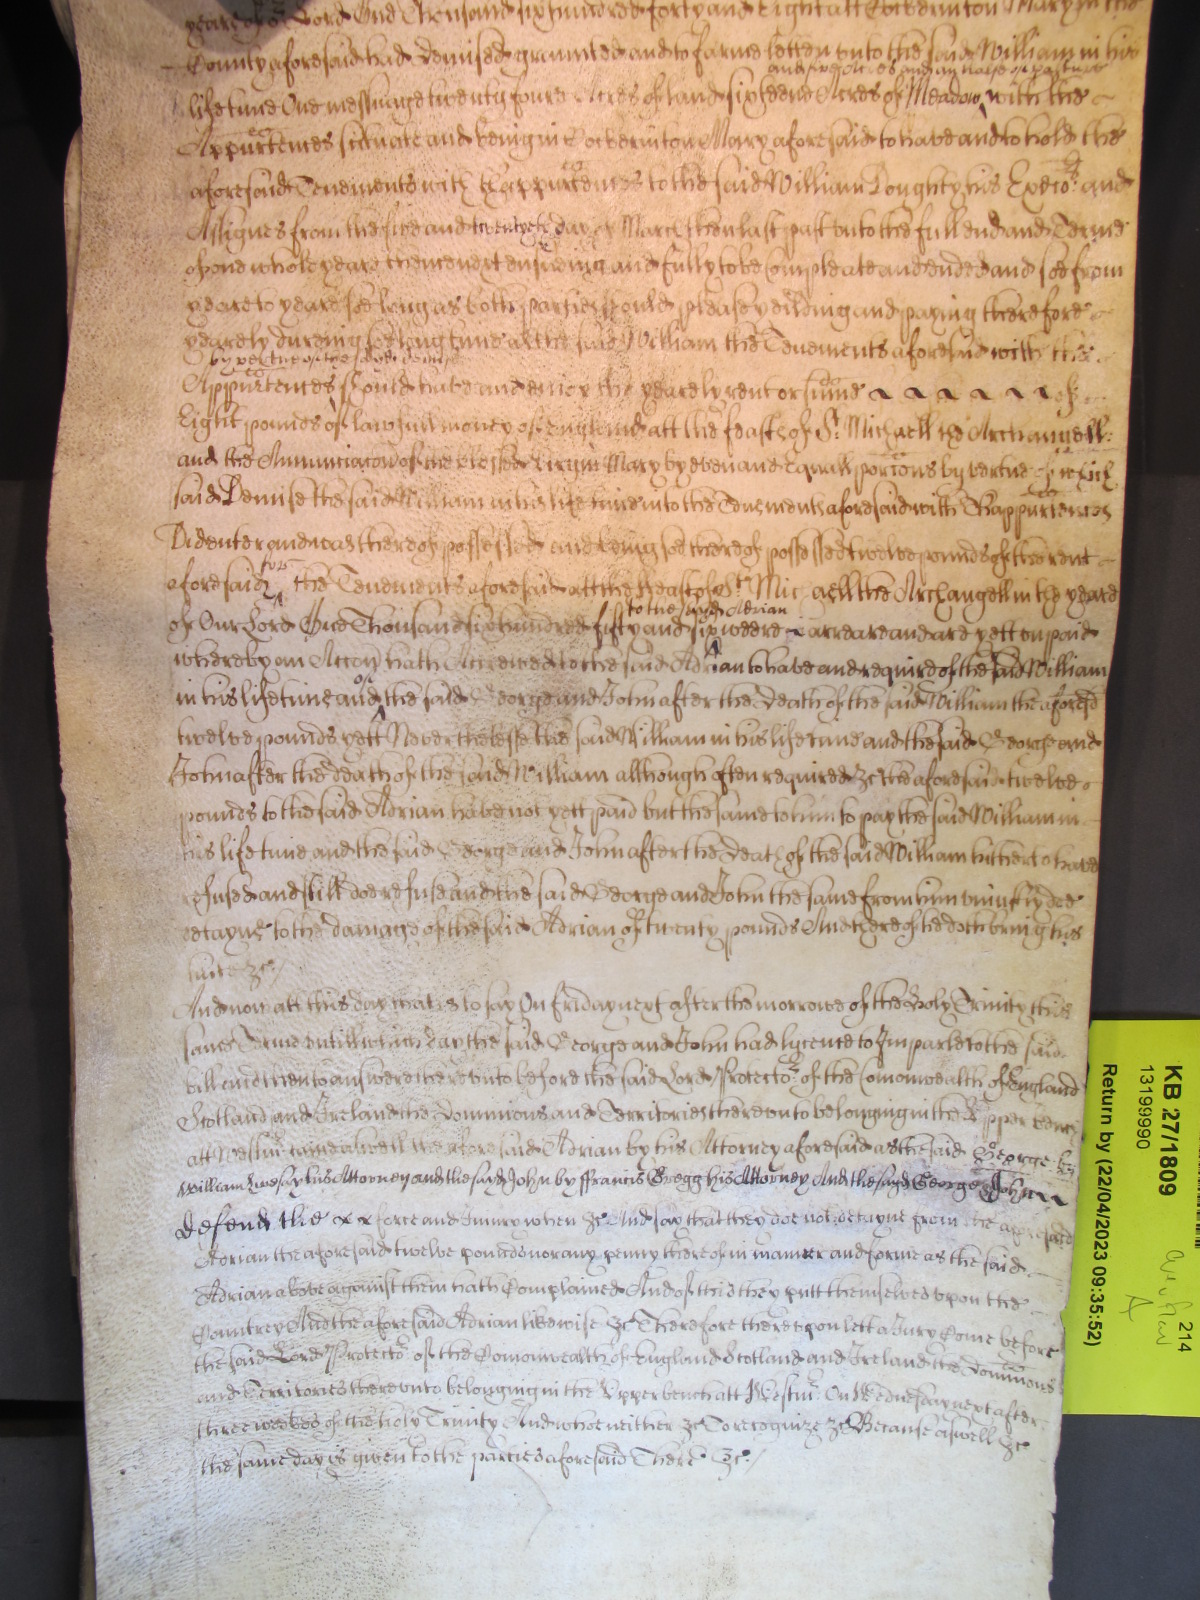 yeare of oʳ Lord One Thousand six hundred forty and Eight att Ockerinton Mary in the
County aforesaid had Demised graunted and to farme letten unto the said William in his
and five Acres and an halfe of pasture
life time One messuage twenty foure Acres of land sixteene Acres of Meadow with the
Appurtences scituate and being in Ockerinton Mary aforesaid to have and to hold the
aforesaid Tenements with Thappurtences to the said William Doughty his Exeᵗoʳs and
Assignes from the five and twentyeth day of March then last past unto the full end and Terme
of one whole yeare thence next ensueing and fully to be Compleate and ended and soe from
yeare to yeare soe long as both parties should please yeilding and paying therefore
yearely dureing soe long time as the said William the Tenements aforesaid with the
by vertue of the said demise
Appurtences should have and enioy the yearely rent or sume of
Eight pounds of lawfull money of England att the feasts of Sᵗ Michaell the Archangell
and the Annunciacon of the blessed Virgin Mary by even and Equall porcons by vertue of which
said Demise the said William in his life time into the Tenements aforesaid with Thappurtences
Did enter and was thereof possessed and being soe thereof possessed twelve pounds of the rent
aforesaid for the Tenements aforesaid att the Feast of Sᵗ Michaell the Archangell in the yeare
to the said Adrian
of Our Lord One Thousand six hundred fifty and six weere arreare and are yett unpaid
whereby an Accon hath Accrewed to the said Adrian to have and require of the said William
in his life time and of the said George and John after the Death of the said William the aforesd
twelve pounds yett Neverthelesse the said William in his life time and the said George and
John after the death of the said William although often required &c the aforesaid twelve
pounds to the said Adrian have not yett paid but the same to him to pay the said William in
his life time and the said George and John after the Death of the said William hitherto have
refused and still doe refuse and the said George and John the same from him uniustly doe
detayne to the damage of the said Adrian of twenty pounds And thereof he doth bring his
suite &c /
And now att this day that is to say On Friday next after the morrowe of the Holy Trinity this
same Terme untill which day the said George and John had lycence to Imparle to the said
bill and then to answere thereunto before the said Lord Protectoʳ of the Comonwealth of England
Scotland and Ireland the Dominions and Territories thereunto belonging in the Upper bench
att Westmʳ came aswell the aforesaid Adrian by his Attorney aforesaid as the said George by
William his Attorney and the sayd John by ffrancis Gregg his Attorney And the sayd George & John
defend the force and Iniury when &c And say that they doe not detayne from the aforesaid
Adrian the aforesaid twelve pounds nor any penny thereof in manner and forme as the said
Adrian above against them hath Complained And of this they putt themselves upon the
Countrey And the aforesaid Adrian likewise &c Therefore thereupon lett a Jury Come before
the said Lord Protectoʳ of the Comonwealth of England Scotland and Ireland the Dominions
and Territories thereunto belonging in the Upper bench att Westmʳ On Wednesday next after
three weekes of the holy Trinity And who neither &c To recognize &c Because aswell &c
the same day is given to the parties aforesaid There &c /
KB 27/1809
13199990
Return by (22/04/2023 09:35:52)
214